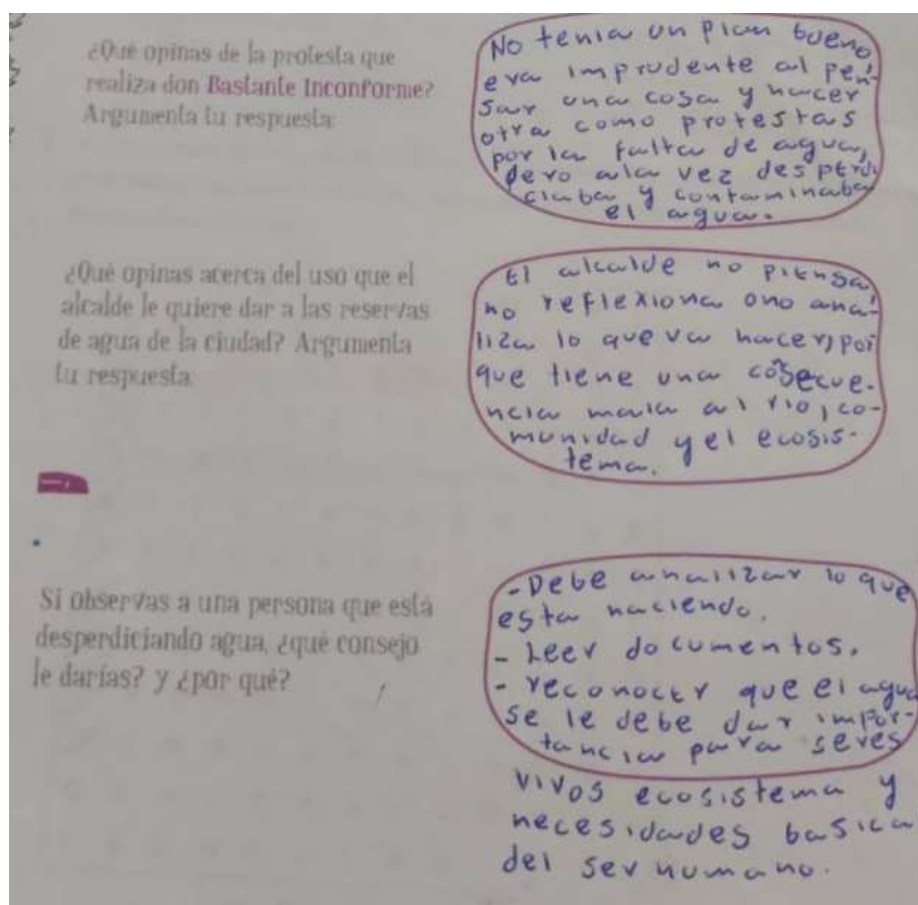 ¿Qué opinas de la protesta que
realiza don Bastante Inconforme?
Argumenta tu respuesta:
No tenia un plan bueno
era imprudente al pen-
sar una cosa y hacer
otra como protestas
por la falta de agua,
pero ala vez desperdi
ciaba y contaminaba
el agua.
¿Qué opinas acerca del uso que el
alcalde le quiere dar a las reservas
de agua de la ciudad? Argumenta
tu respuesta:
El alcalde no piensa
no reflexiona ono ana-
liza lo que va hacer, por
que tiene una cosecue-
ncia mala al rio, co-
munidad y el ecosis-
tema.
Si observas a una persona que está
desperdiciando agua, ¿qué consejo
le darías? y ¿por qué?
- Debe analizar lo que
esta haciendo.
- Leer documentos.
- reconocer que el agua
se le debe dar impor-
tancia para seres
vivos ecosistema y
necesidades basica
del ser humano.